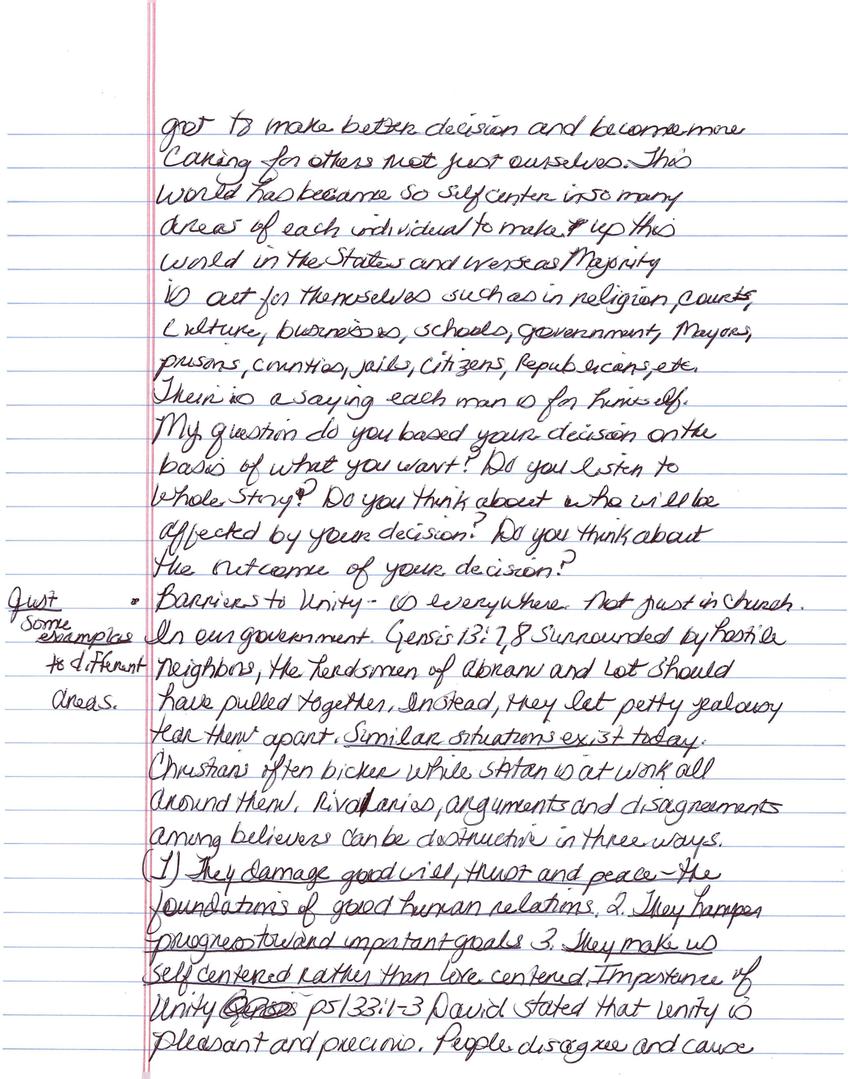 got to make better decision and become more
Caring for others not just ourselves. This
world has became so self center in so many
areas of each individual to make up this
world in the States and overseas Majority
is out for themselves such as in religion, courts,
Culture, businesses, schools, government, Mayors,
prisons, counties, jails, Citizens, Republicans, etc.
Their is a saying each man is for himself.
My question do you based your decision on the
basis of what you want? Do you listen to
whole story? Do you think about who will be
affected by your decision? Do you think about
the outcome of your decision?
Just
some
examples
to different
areas.
• Barriers to Unity - is everywhere. Not just in church.
In our government. Gensis 13:7,8 Surrounded by hostile
neighbors, the herdsmen of Abram and Lot should
have pulled together, Instead, they let petty jealousy
tear them apart. Similar situations exist today.
Christians often bicker while Satan is at work all
around them. Rivalaries, arguments and disagreements
among believers can be destructive in three ways.
(1) They damage good will, trust and peace - the
foundations of good human relations. 2. They hamper
progress toward important goals 3. They make us
self centered rather than love centered. Importence of
Unity ps 133:1-3 David stated that unity is
pleasant and precious. People disagree and cause